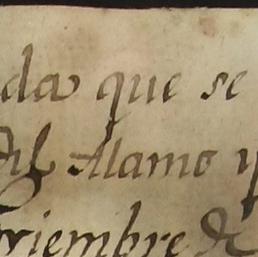 da que se
del Alamo y
triembre de